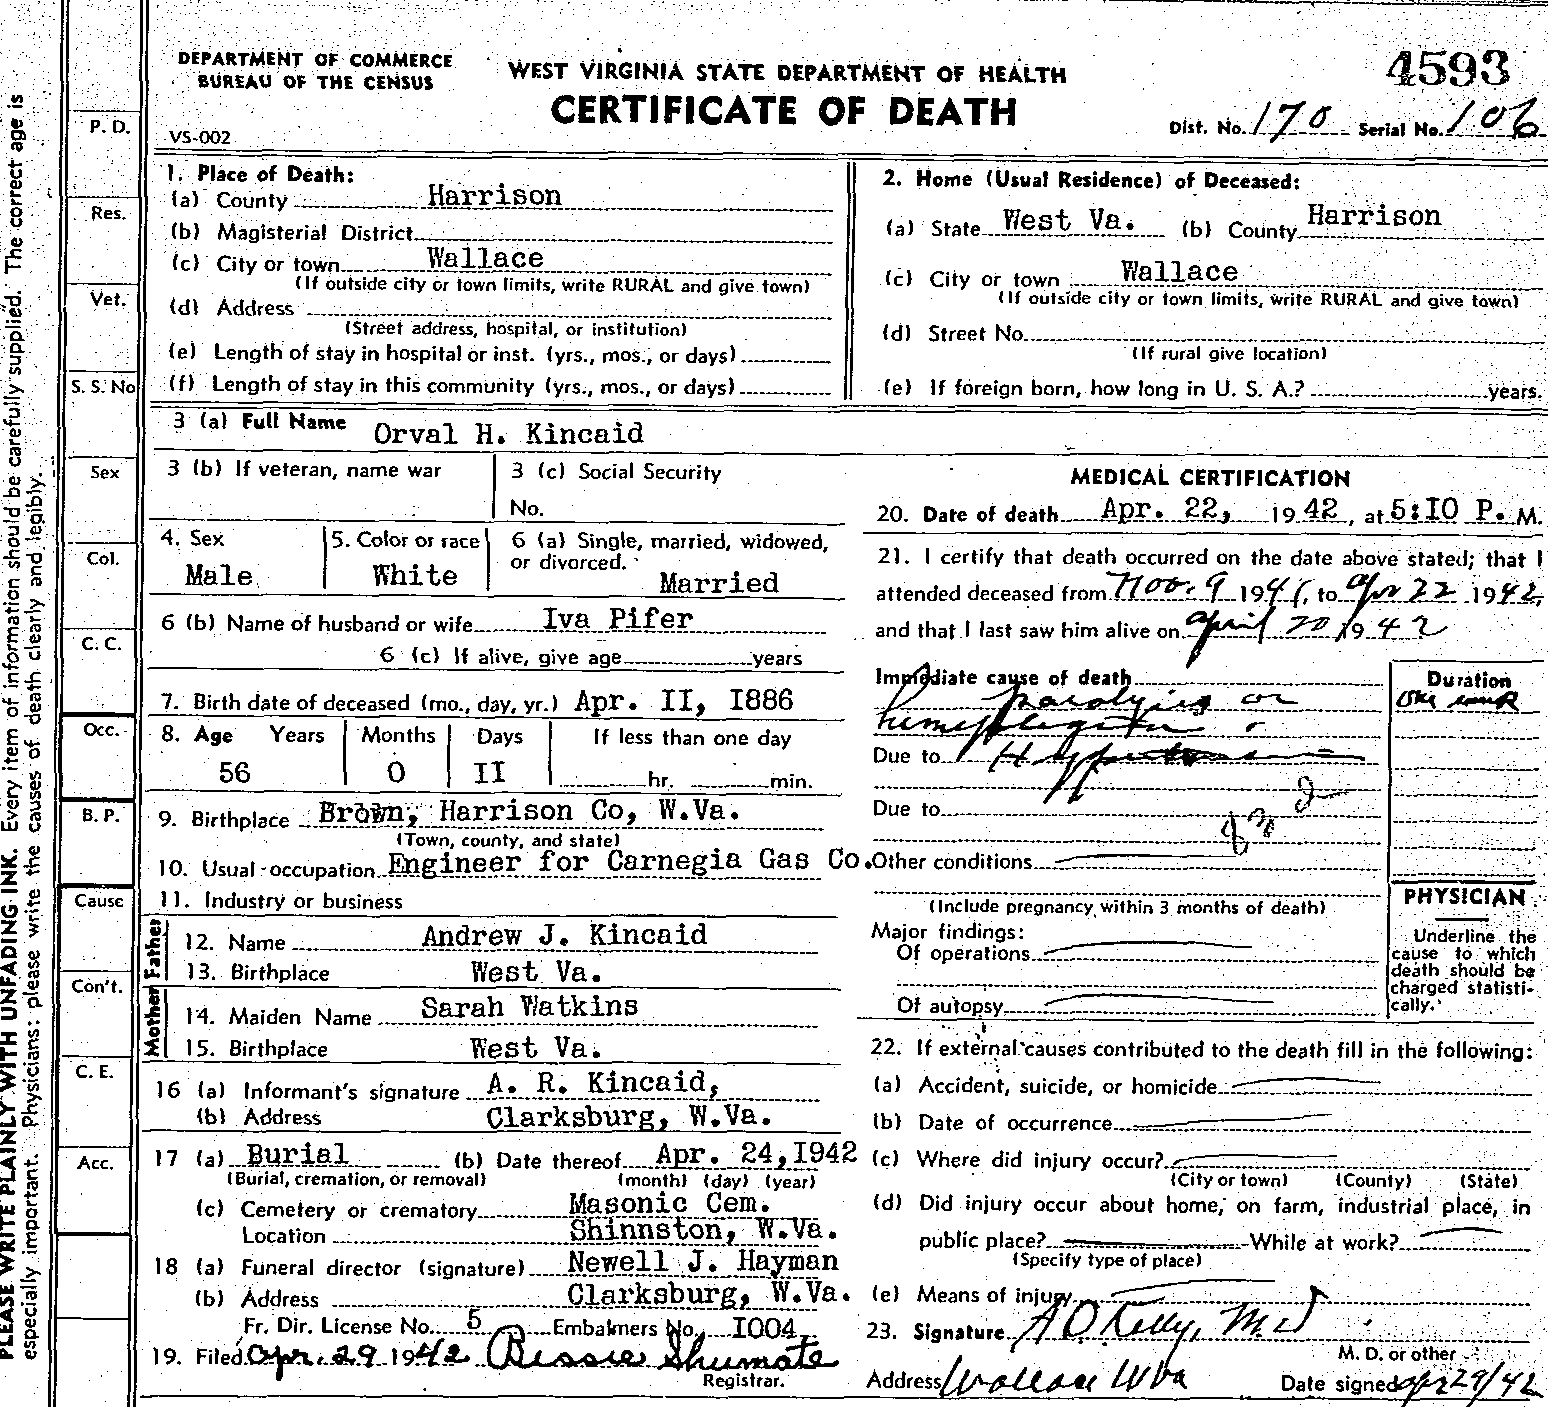 PLEASE WRITE PLAINLY WITH UNFADING INK. Every item of information should be carefully supplied. The correct age is
especially important. Physicians: please write the causes of death clearly and legibly.
P. D.
Res.
Vet.
S. S. No
Sex
Col.
C. C.
Occ.
B. P.
Cause
Con't.
C. E.
Acc.
DEPARTMENT OF COMMERCE
BUREAU OF THE CENSUS
VS-002
WEST VIRGINIA STATE DEPARTMENT OF HEALTH
CERTIFICATE OF DEATH
4593
Dist. No. 170 Serial No. 106
1. Place of Death:
(a) County Harrison
(b) Magisterial District
(c) City or town Wallace
(If outside city or town limits, write RURAL and give town)
(d) Address
(Street address, hospital, or institution)
(e) Length of stay in hospital or inst. (yrs., mos., or days)
(f) Length of stay in this community (yrs., mos., or days)
2. Home (Usual Residence) of Deceased:
(a) State West Va. (b) County Harrison
(c) City or town Wallace
(If outside city or town limits, write RURAL and give town)
(d) Street No.
(If rural give location)
(e) If foreign born, how long in U. S. A.? years.
3 (a) Full Name Orval H. Kincaid
3 (b) If veteran, name war
3 (c) Social Security
No.
4. Sex
Male
5. Color or race
White
6 (a) Single, married, widowed,
or divorced.
Married
6 (b) Name of husband or wife Iva Pifer
6 (c) If alive, give age years
7. Birth date of deceased (mo., day, yr.) Apr. II, I886
8. Age Years Months Days If less than one day
56 0 II hr. min.
9. Birthplace Brown, Harrison Co, W.Va.
(Town, county, and state)
10. Usual occupation Engineer for Carnegia Gas Co.
11. Industry or business
Father
12. Name Andrew J. Kincaid
13. Birthplace West Va.
Mother
14. Maiden Name Sarah Watkins
15. Birthplace West Va.
16 (a) Informant's signature A. R. Kincaid,
(b) Address Clarksburg, W.Va.
17 (a) Burial (b) Date thereof Apr. 24,I942
(Burial, cremation, or removal) (month) (day) (year)
(c) Cemetery or crematory Masonic Cem.
Location Shinnston, W.Va.
18 (a) Funeral director (signature) Newell J. Hayman
(b) Address Clarksburg, W.Va.
Fr. Dir. License No. 5 Embalmers No. I004
19. Filed Apr. 29 1942 Bessie Shumate
Registrar.
MEDICAL CERTIFICATION
20. Date of death Apr. 22, 19 42, at 5:I0 P. M.
21. I certify that death occurred on the date above stated; that I
attended deceased from Nov. 9 1941, to Apr 22 1942,
and that I last saw him alive on April 20 1942
Immediate cause of death
paralysis or
hemiplegia
Due to
Due to
Other conditions
(Include pregnancy within 3 months of death)
Major findings:
Of operations
Of autopsy
Duration
One week
PHYSICIAN
Underline the
cause to which
death should be
charged statisti-
cally.
22. If external causes contributed to the death fill in the following:
(a) Accident, suicide, or homicide
(b) Date of occurrence
(c) Where did injury occur?
(City or town) (County) (State)
(d) Did injury occur about home, on farm, industrial place, in
public place? While at work?
(Specify type of place)
(e) Means of injury
23. Signature A O Kelly, M.D
M. D. or other
Address Wallace W Va Date signed Apr 29/42